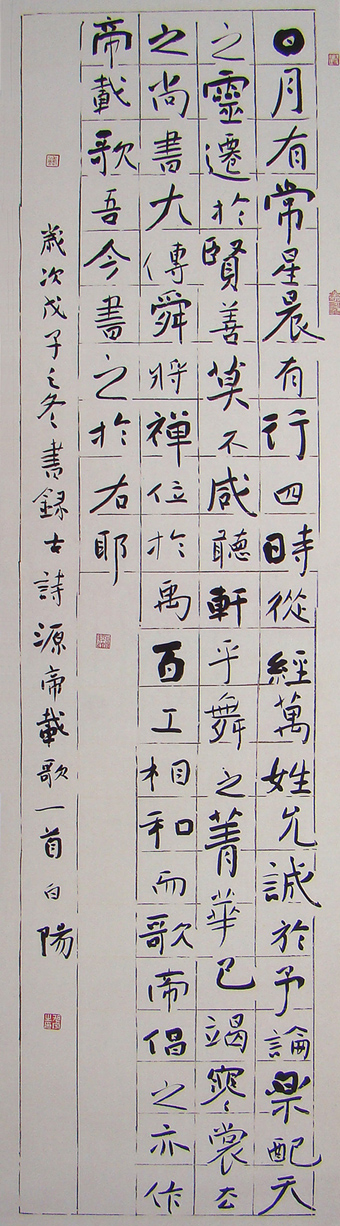 日月有常星晨有行四時從經萬姓允誠於予論樂配天
之靈遷於賢善莫不咸聽軒乎舞之菁華已竭褰裳去
之尚書大傳舜將禪位於禹百工相和而歌帝倡之亦作
帝載歌吾今書之於右耶
歲次戊子之冬書錄古詩源帝載歌一首白陽